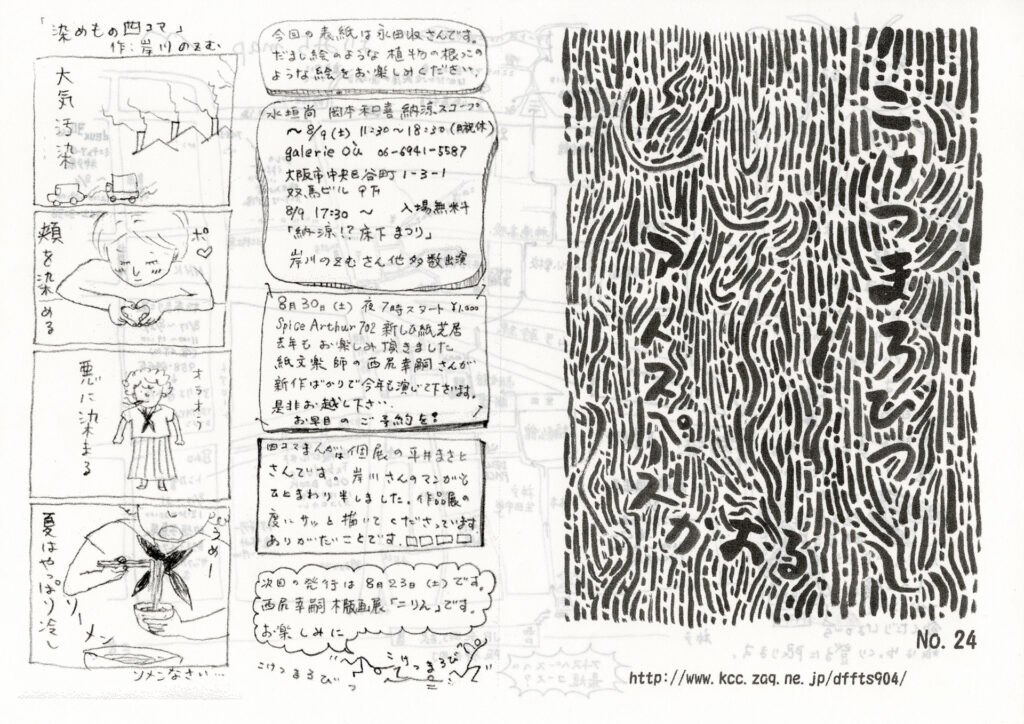 「染めもの四コマ」
作:岸川のぞむ
大気汚染
ポ♡
頬を染める
オラオラ
悪に染まる
うめー
夏はやっぱり冷し
ソーメン
ソメンなさい…
今回の表紙は永田収さんです。
だまし絵のような植物の根っこの
ような絵をお楽しみください。
水垣尚 岡本和喜 納涼スコープ
～8/9(土) 11:30～18:30(日祝休)
galerie Où 06-6941-5587
大阪市中央区谷町1-3-1
双馬ビル 9F
8/9 17:30 ～ 入場無料
「納涼!?床下まつり」
岸川のぞむさん他多数出演
8月30日(土) 夜7時スタート ¥1,000
Spice Arthur 702 新しひ紙芝居
去年もお楽しみ頂きました
紙文楽師の西尻幸嗣さんが
新作ばかりで今年も演じて下さいます。
是非お越し下さい。
お早目のご予約を!
四コマまんがは個展の平井まさと
さんです。岸川さんのマンガも
ひとまわり半しました。作品展の
度にサッと描いてくださっています。
ありがたいことです。
次回の発行は8月23日(土)です。
西尻幸嗣木版画展「ニりん」です。
お楽しみに
こけつまろびつ
こけつまろびつ
こけつまろびつ
アトスペース
が
おる
No. 24
http://www.kcc.zaq.ne.jp/dffts904/